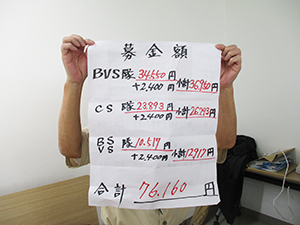 募金額
BVS隊 34,550円
+2,400円 小計36,950円
CS 隊 23,893円
+2,400円 小計26,293円
BS
VS 隊 10,517円
+2,400円 小計12,917円
合計 76,160円